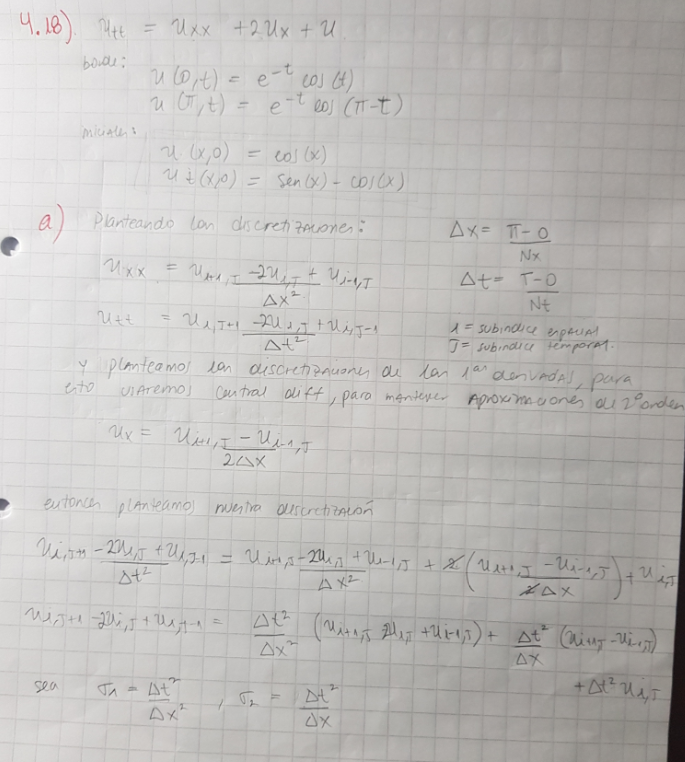 4.18) u_tt = u_xx + 2u_x + u
borde:
u(0,t) = e^-t cos(t)
u(π,t) = e^-t cos(π-t)
iniciales:
u(x,0) = cos(x)
u_t(x,0) = sen(x) - cos(x)
a) Planteando las discretizaciones: Δx = (π-0)/Nx
u_xx = (u_i+1,J - 2u_i,J + u_i-1,J)/Δx² Δt = (T-0)/Nt
u_tt = (u_i,J+1 - 2u_i,J + u_i,J-1)/Δt² i = subindice espacial
J = subindice temporal.
y planteamos las discretizaciones de las 1as derivadas, para
esto usaremos central diff, para mantener aproximaciones de 2º orden
u_x = (u_i+1,J - u_i-1,J)/2Δx
entonces planteamos nuestra discretización
(u_i,J+1 - 2u_i,J + u_i,J-1)/Δt² = (u_i+1,J - 2u_i,J + u_i-1,J)/Δx² + 2((u_i+1,J - u_i-1,J)/2Δx) + u_i,J
u_i,J+1 - 2u_i,J + u_i,J-1 = Δt²/Δx² (u_i+1,J 2u_i,J + u_i-1,J) + Δt²/Δx (u_i+1,J - u_i-1,J)
+ Δt² u_i,J
sea σ1 = Δt²/Δx² , σ2 = Δt²/Δx